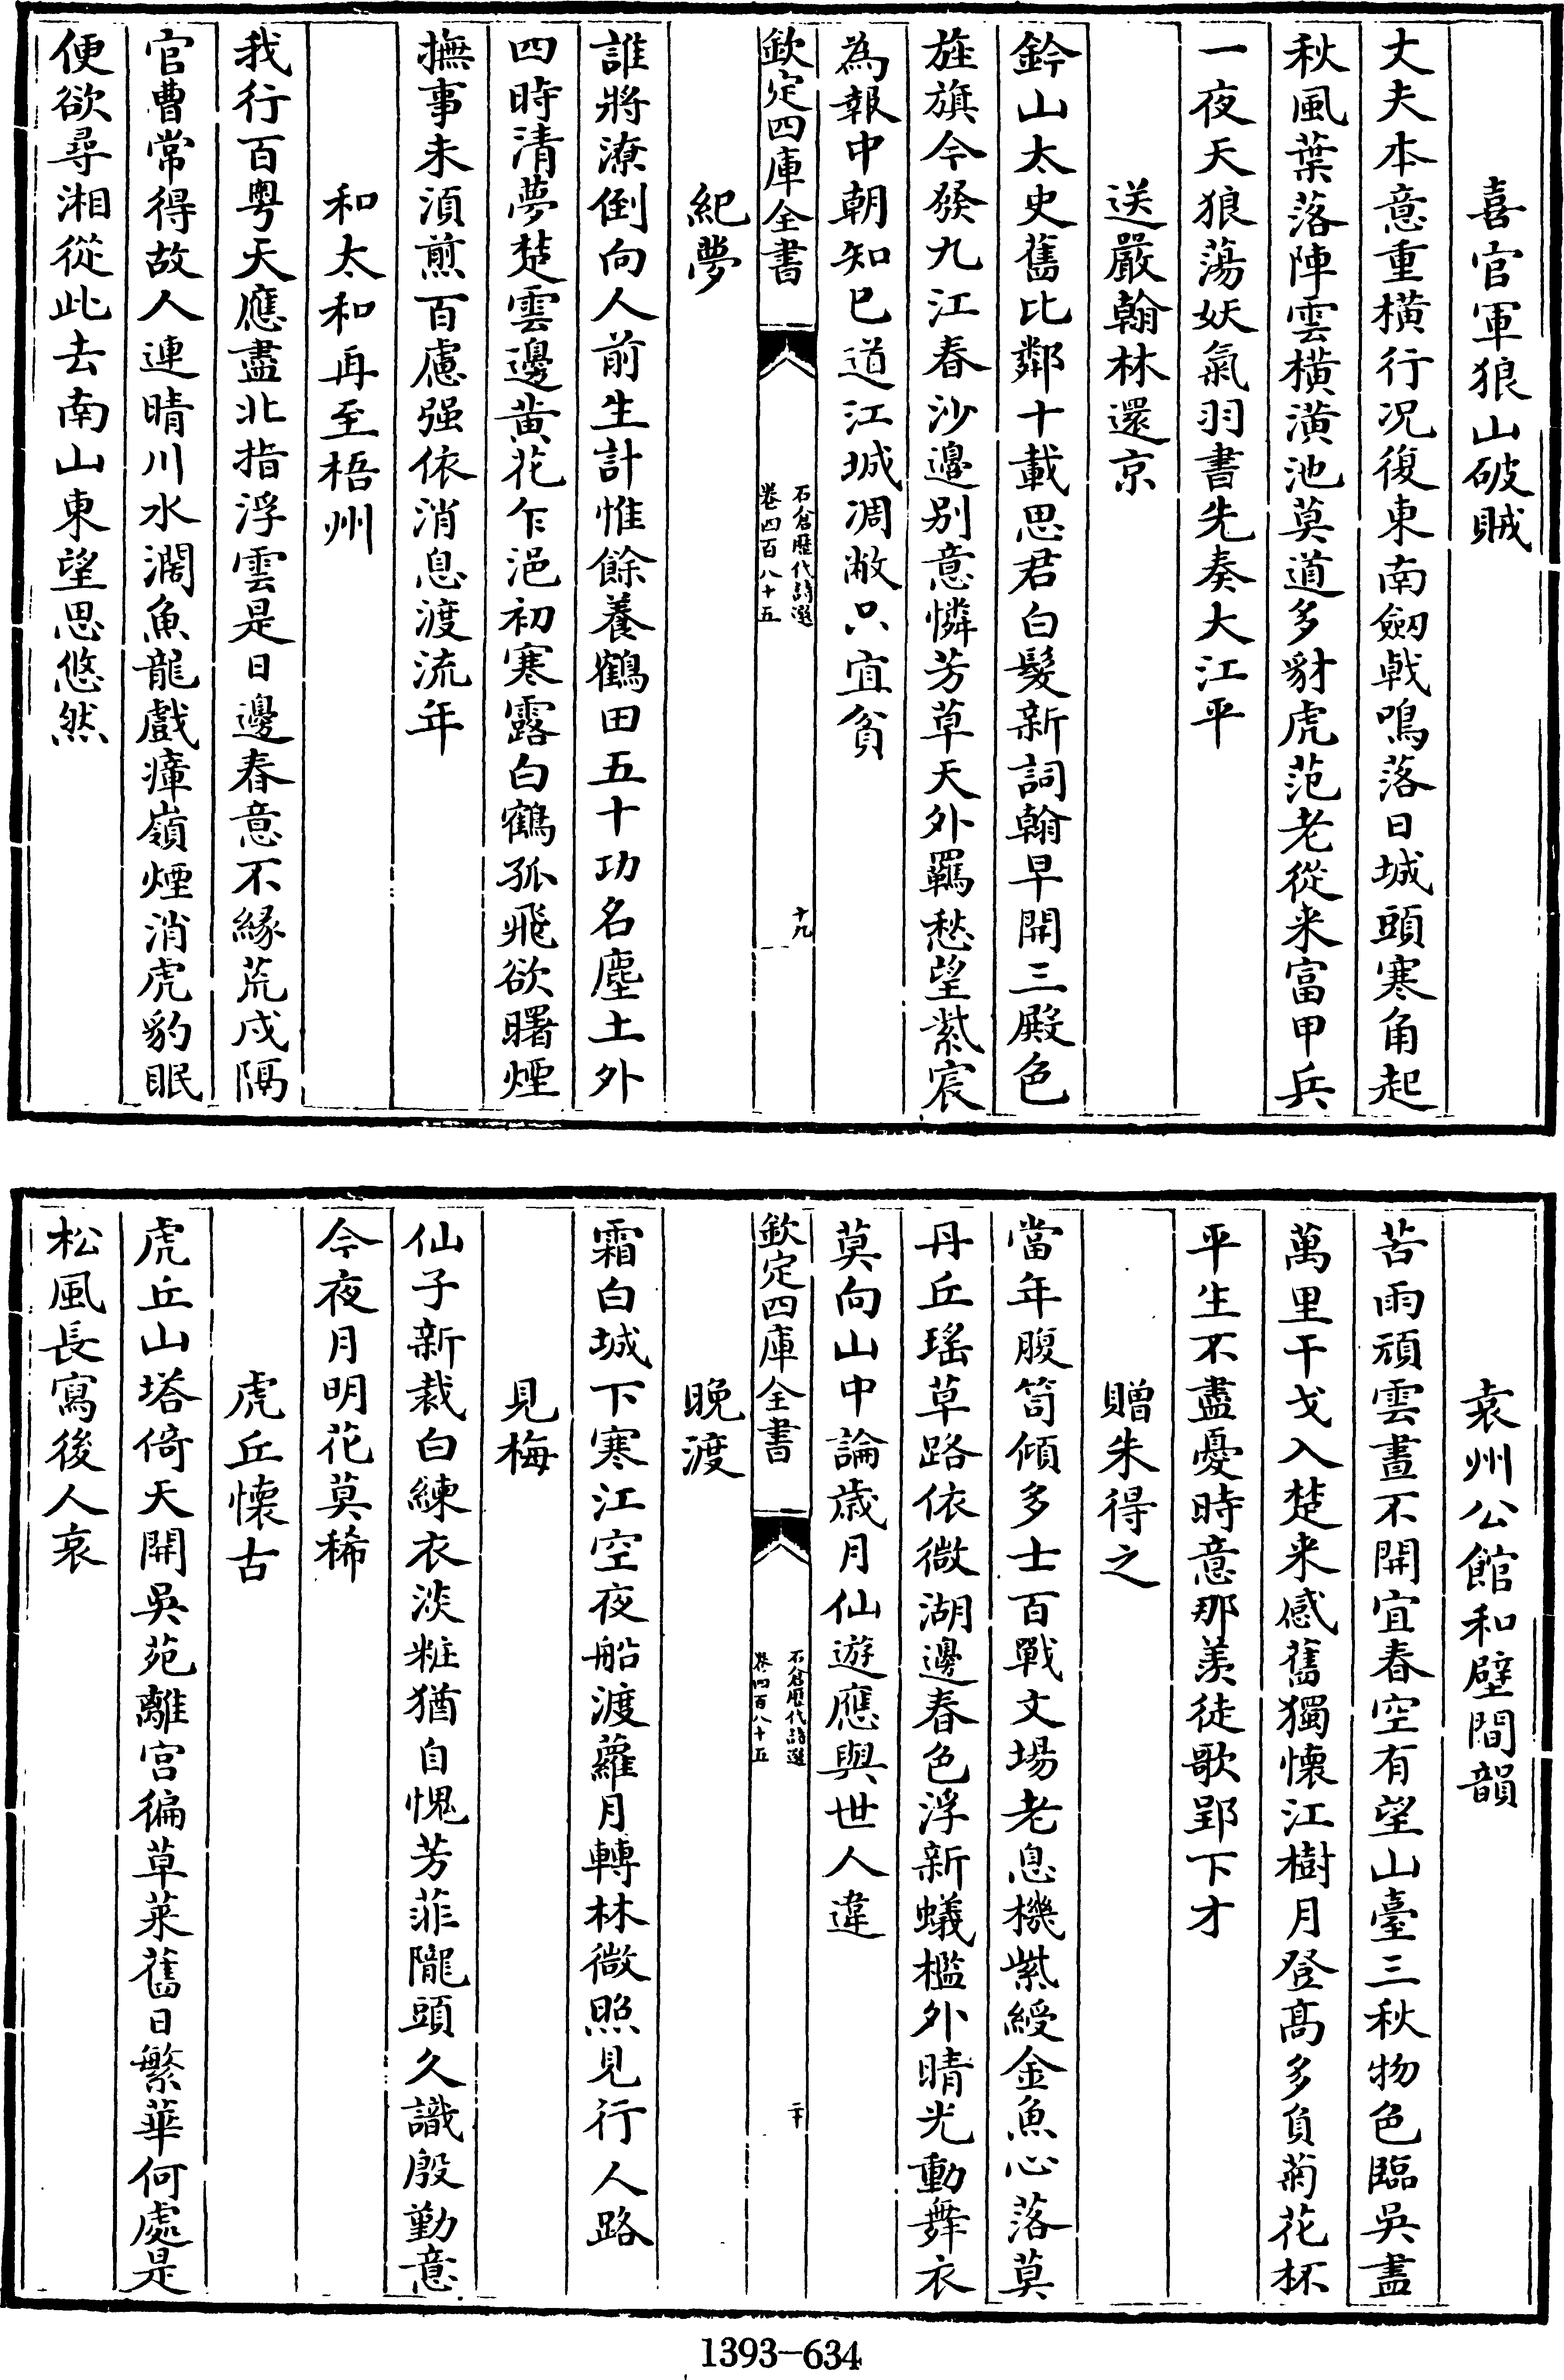 喜官軍狼山破賊
丈夫本意重横行况復東南劒戟鳴落日城頭寒角起
秋風葉落陣雲横潢池莫道多豺虎范老從来富甲兵
一夜天狼蕩妖氣羽書先奏大江平
送嚴翰林還京
鈐山太史舊比鄰十載思君白髮新詞翰早開三殿色
旌旗今發九江春沙邊别意憐芳草天外羈愁望紫宸
為報中朝知已道江城凋敝只宜貧
欽定四庫全書
石倉歷代詩選
卷四百八十五
十九
紀夢
誰將潦倒向人前生計惟餘養鶴田五十功名塵土外
四時清夢楚雲邊黄花乍浥初寒露白鶴孤飛欲曙煙
撫事未須煎百慮强依消息渡流年
和太和再至梧州
我行百粤天應盡北指浮雲是日邊春意不緣荒戍隔
官曹常得故人連晴川水濶魚龍戲瘴嶺煙消虎豹眠
便欲尋湘從此去南山東望思悠然
袁州公館和壁間韻
苦雨頑雲晝不開宜春空有望山臺三秋物色臨吳盡
萬里干戈入楚来感舊獨懷江樹月登髙多負菊花杯
平生不盡憂時意那羨徒歌郢下才
贈朱得之
當年腹笥傾多士百戰文場老息機紫綬金魚心落莫
丹丘瑤草路依微湖邊春色浮新蟻檻外晴光動舞衣
莫向山中論歲月仙遊應與世人違
欽定四庫全書
石倉歷代詩選
卷四百八十五
二十
晚渡
霜白城下寒江空夜船渡蘿月轉林微照見行人路
見梅
仙子新裁白練衣淡粧猶自愧芳菲隴頭久識殷勤意
今夜月明花莫稀
虎丘懷古
虎丘山塔倚天開吳苑離宮徧草萊舊日繁華何處是
松風長寫後人哀
1393-634